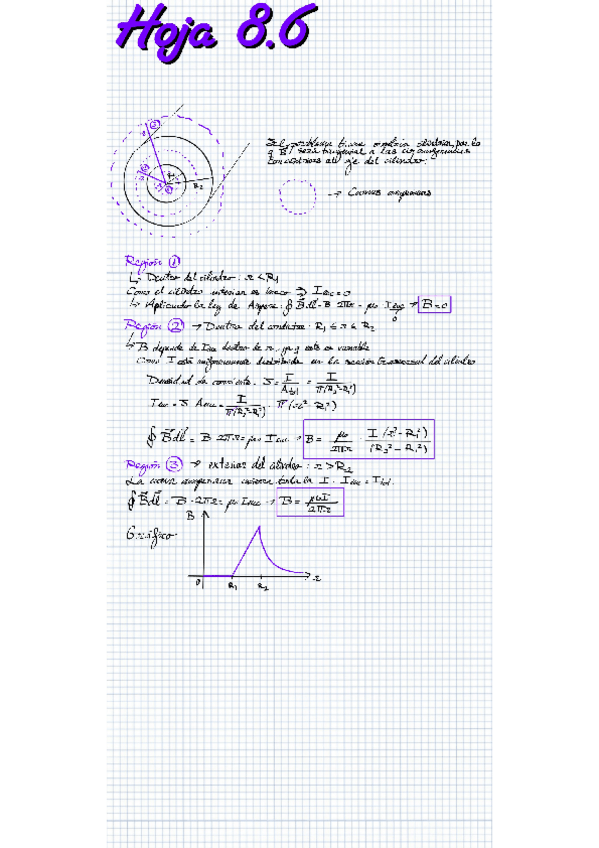 Hoja 8.6
El problema tiene simetría cilíndrica, por lo
q B será tangencial a las circunferencias
concéntricas al eje del cilindro.
→ Curvas amperianas
R₂
Región ①
↳ Dentro del cilindro: r < R₁
Como el cilindro interior es hueco ⇒ I enc = 0
↳ Aplicando la ley de Ampere: ∮ B dl = B 2πr = μ₀ I enc → B = 0
0
Región ② → Dentro del conductor: R₁ ≤ r ≤ R₂
↳ B depende de I enc dentro de r, ya q este es variable
Como I está uniformemente distribuida en la sección transversal del cilindro
Densidad de corriente: J = I / A total = I / π(R₂² - R₁²)
I enc = J A enc = I / π(R₂² - R₁²) · π(r² - R₁²)
∮ B dl = B 2πr = μ₀ I enc → B = μ₀ / 2πr · I (r² - R₁²) / (R₂² - R₁²)
Región ③ → exterior del cilindro: r > R₂
La curva amperiana encierra toda la I. I enc = I tot.
∮ B dl = B · 2πr = μ₀ I enc → B = μ₀ I / 2πr
Gráfico
B
0 R₁ R₂ r